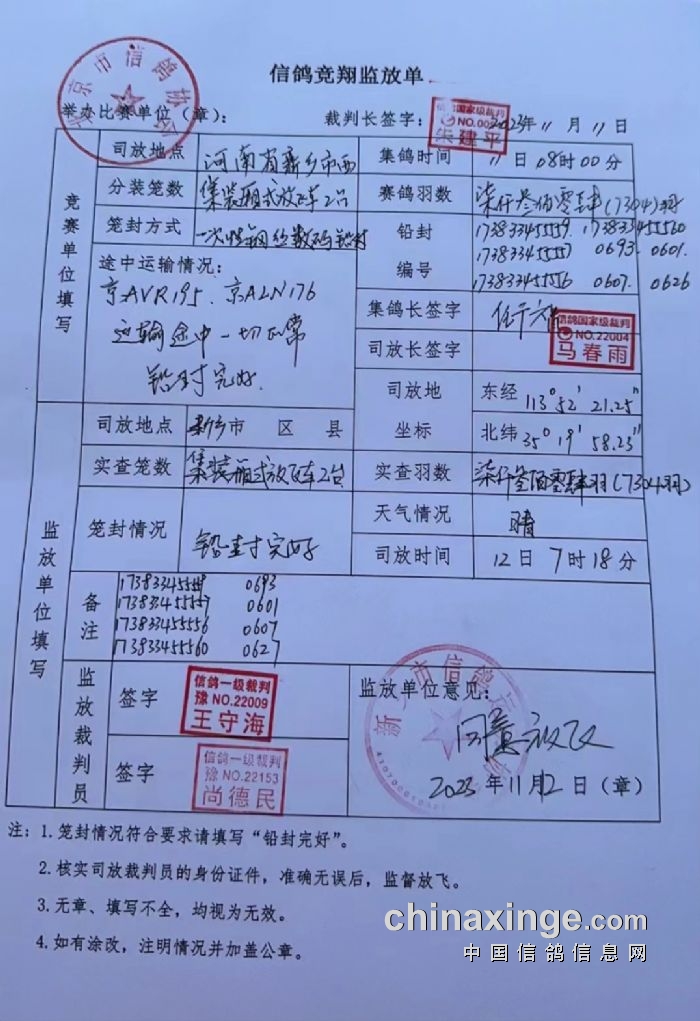 信鸽竞翔监放单
北京市信鸽协会
举办比赛单位（章）： 裁判长签字： 2023年11月11日
信鸽国家级裁判
朱建平
竞赛单位填写
司放地点 河南省新乡市西 集鸽时间 11日08时00分
分装笼数 集装箱式放飞车2台 赛鸽羽数 柒仟叁佰零肆(7304)羽
笼封方式 一次性钢丝数码铅封 铅封编号 17383345559. 173833455560
17383345557 0693. 0601.
17383345556 0607. 0626
途中运输情况：
京AVR195. 京ALN176
运输途中一切正常
铅封完好.
集鸽长签字
司放长签字
信鸽国家级裁判
NO.22004
马春雨
司放地坐标 东经 113°52′21.25″
北纬 35°19′58.23″
监放单位填写
司放地点 新乡市 区 县
实查笼数 集装箱式放飞车2台 实查羽数 柒仟叁佰零肆羽(7304羽)
笼封情况 铅封完好 天气情况 晴
司放时间 12日7时18分
备注
0693
17383345557 0601
17383345556 0607
173833455560 0627
监放裁判员
签字
信鸽一级裁判
豫 NO.22009
王守海
签字
信鸽一级裁判
豫 NO.22153
尚德民
监放单位意见：
同意放飞
2023年11月12日（章）
注：1.笼封情况符合要求请填写“铅封完好”。
2.核实司放裁判员的身份证件，准确无误后，监督放飞。
3.无章、填写不全，均视为无效。
4.如有涂改，注明情况并加盖公章。
chinaxinge.com
中国信鸽信息网